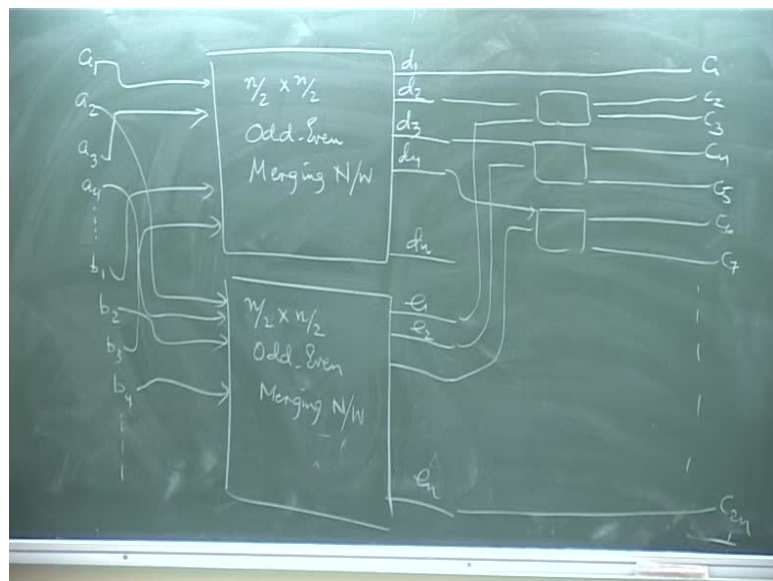 a₁
a₂
a₃
a₄
b₁
b₂
b₃
b₄
n/2 × n/2
Odd-Even
Merging N/W
d₁
d₂
d₃
d₄
dₙ
n/2 × n/2
Odd-Even
Merging N/W
e₁
e₂
eₙ
C₁
C₂
C₃
C₄
C₅
C₆
C₇
C₂ₙ